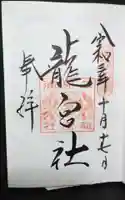 令和三年十月十七日
龍宮社
奉拝